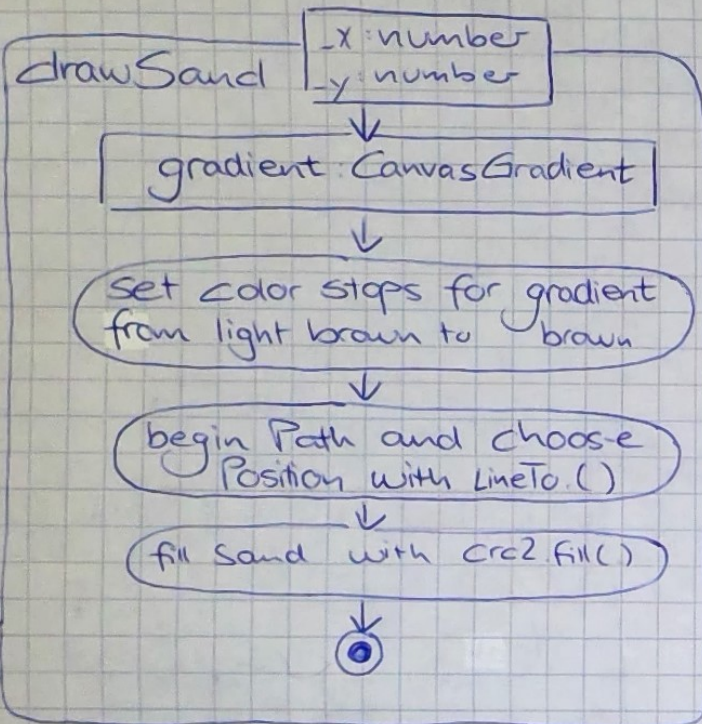 drawSand
_x : number
_y : number
gradient : CanvasGradient
set color stops for gradient
from light brown to brown
begin Path and choose
Position with LineTo.()
fill Sand with crc2.fill()